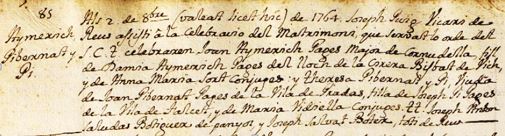 85
Aymerich, y
Pibernat y
Pi.
Als 2. de 8bre (valeat licet hic) de 1764. Joseph Puig Vicari de
Reus assistí a la Celebració del Matrimoni, que servato lo orde del
S. C. T. celebraren Joan Aymerich Pages Major de Cornudella, fill
de Damia Aymerich Pages del Bisbat de Vich,
y de Anna Maria Sort Conjuges: y Theresa Pibernat y Pi Viuda
de Joan Pibernat Pages de la Vila de Pradas, filla de Joseph Pi Pages
de la Vila de Falset, y de Maria Vidiella Conjuges. TT. Joseph Anton
Saludas Botiguer de panyos, y Joseph Salvat Boter, tots de Reus